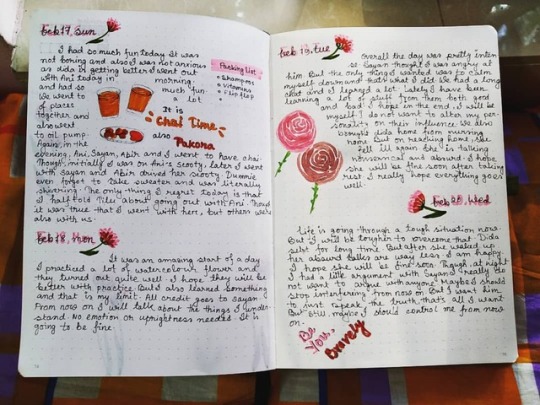 Feb 17, Sun
I had so much fun today. It was
not boring and also I was not anxious
as dida is getting better. I went out
with Ani today in morning.
and had so much fun
We went to a lot
of places It is
together and Chai Time
also went also
to oil pump. Pakora
Again, in the
evening, Ani, Sayan, Abir and I went to have chai.
Though initially I was on Ani's scooty, later I went
with Sayan and Abir drived her scooty. Dummie
even forget to take sweater and was literally
shivering. The only thing I regret today is that
I half told Titli about going out with Ani. Though
it was true that I went with her, but others were
also with us.
Packing List
Shampoo
Vitamins
Flip flops
Feb 18, Mon
It was an amazing start of a day
I practiced a lot of watercolour flower and
they turned out quite well. I hope, they will be
better with practice. But I also learned something
and that is my limit. All credit goes to Sayan.
From now on I will talk about the things I under-
stand. No emotion or uprightness needed. It is
going to be fine.
Feb 19, Tue
Overall the day was pretty inten
se. Sayan thought I was angry at
him. But the only thing I wanted was to calm
myself down and that's what I did. We had a long
chat and I learned a lot. Lately I have been
learning a lot of stuff from them both good
and bad. I hope in the end, I will be
myself. I do not want to alter my per-
sonality on their influence. We also
brought dida home from nursing
home. But on reaching home, she
fell ill again. She is talking
nonsensical and absurd. I hope
she will be fine soon after taking
rest. I really hope everything goes
well.
Feb 20, Wed
Life is going through a tough situation now.
But it will be tougher to overcome that. Dida
slept for long time. But after she waked up
her absurd talks are way less. I am happy.
I hope she will be fine soon. Though, at night
I had a little argument with Sayan. I really do
not want to argue with anyone. Maybe I should
stop interfering from now on. But I want him
to just speak the truth. That's all I want.
But still, maybe I should control me from now
on.
Be
You,
Bravely